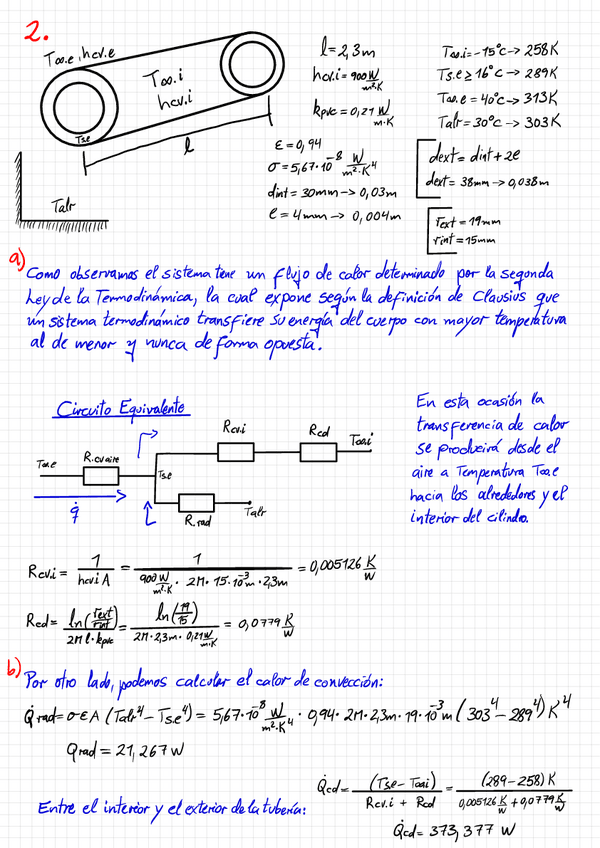 2.
T∞.e, hcv.e
T∞.i
hcv.i
Ts.e
l
Talr
l=2,3m
hcv.i=900 W/m²·K
kpvc=0,21 W/m·K
T∞.i=-15°C→258K
Ts.e≥16°C→289K
T∞.e=40°C→313K
Talr=30°C→303K
ε=0,94
σ=5,67·10⁻⁸ W/m²·K⁴
dint=30mm→0,03m
e=4mm→0,004m
dext=dint+2e
dext=38mm→0,038m
rext=19mm
rint=15mm
a)
Como observamos el sistema tiene un flujo de calor determinado por la segunda
Ley de la Termodinámica, la cual expone según la definición de Clausius que
un sistema termodinámico transfiere su energía del cuerpo con mayor temperatura
al de menor y nunca de forma opuesta.
Circuito Equivalente
T∞.e
R.cv aire
Ts.e
Rcv.i
Rcd
T∞.i
q̇
R.rad
Talr
En esta ocasión la
transferencia de calor
se producirá desde el
aire a Temperatura T∞.e
hacia los alrededores y el
interior del cilindro.
Rcv.i = 1/(hcv.i A) = 1/(900 W/m²·K · 2π · 15·10⁻³m · 2,3m) = 0,005126 K/W
Rcd = ln(rext/rint)/(2π l · kpvc) = ln(19/15)/(2π · 2,3m · 0,21 W/m·K) = 0,0779 K/W
b)
Por otro lado, podemos calcular el calor de convección:
Q̇rad=σ·εA (Talr⁴-Ts.e⁴) = 5,67·10⁻⁸ W/m²·K⁴ · 0,94 · 2π·2,3m·19·10⁻³m (303⁴-289⁴)K⁴
Qrad=21,267 W
Entre el interior y el exterior de la tubería:
Q̇cd = (Ts.e-T∞.i)/(Rcv.i + Rcd) = (289-258)K/(0,005126 K/W + 0,0779 K/W)
Q̇cd = 373,377 W